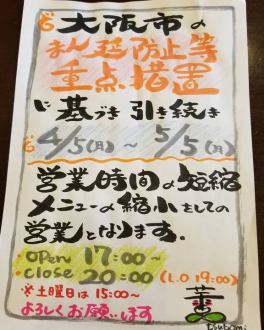 大阪市の
まん延防止等
重点措置
に基づき引き続き
4/5(月)～5/5(月)
営業時間の短縮
メニューの縮小をしての
営業となります.
・open 17:00～
・close 20:00 (L.O 19:00)
※土曜日は15:00～
よろしくお願いします
tsubomi